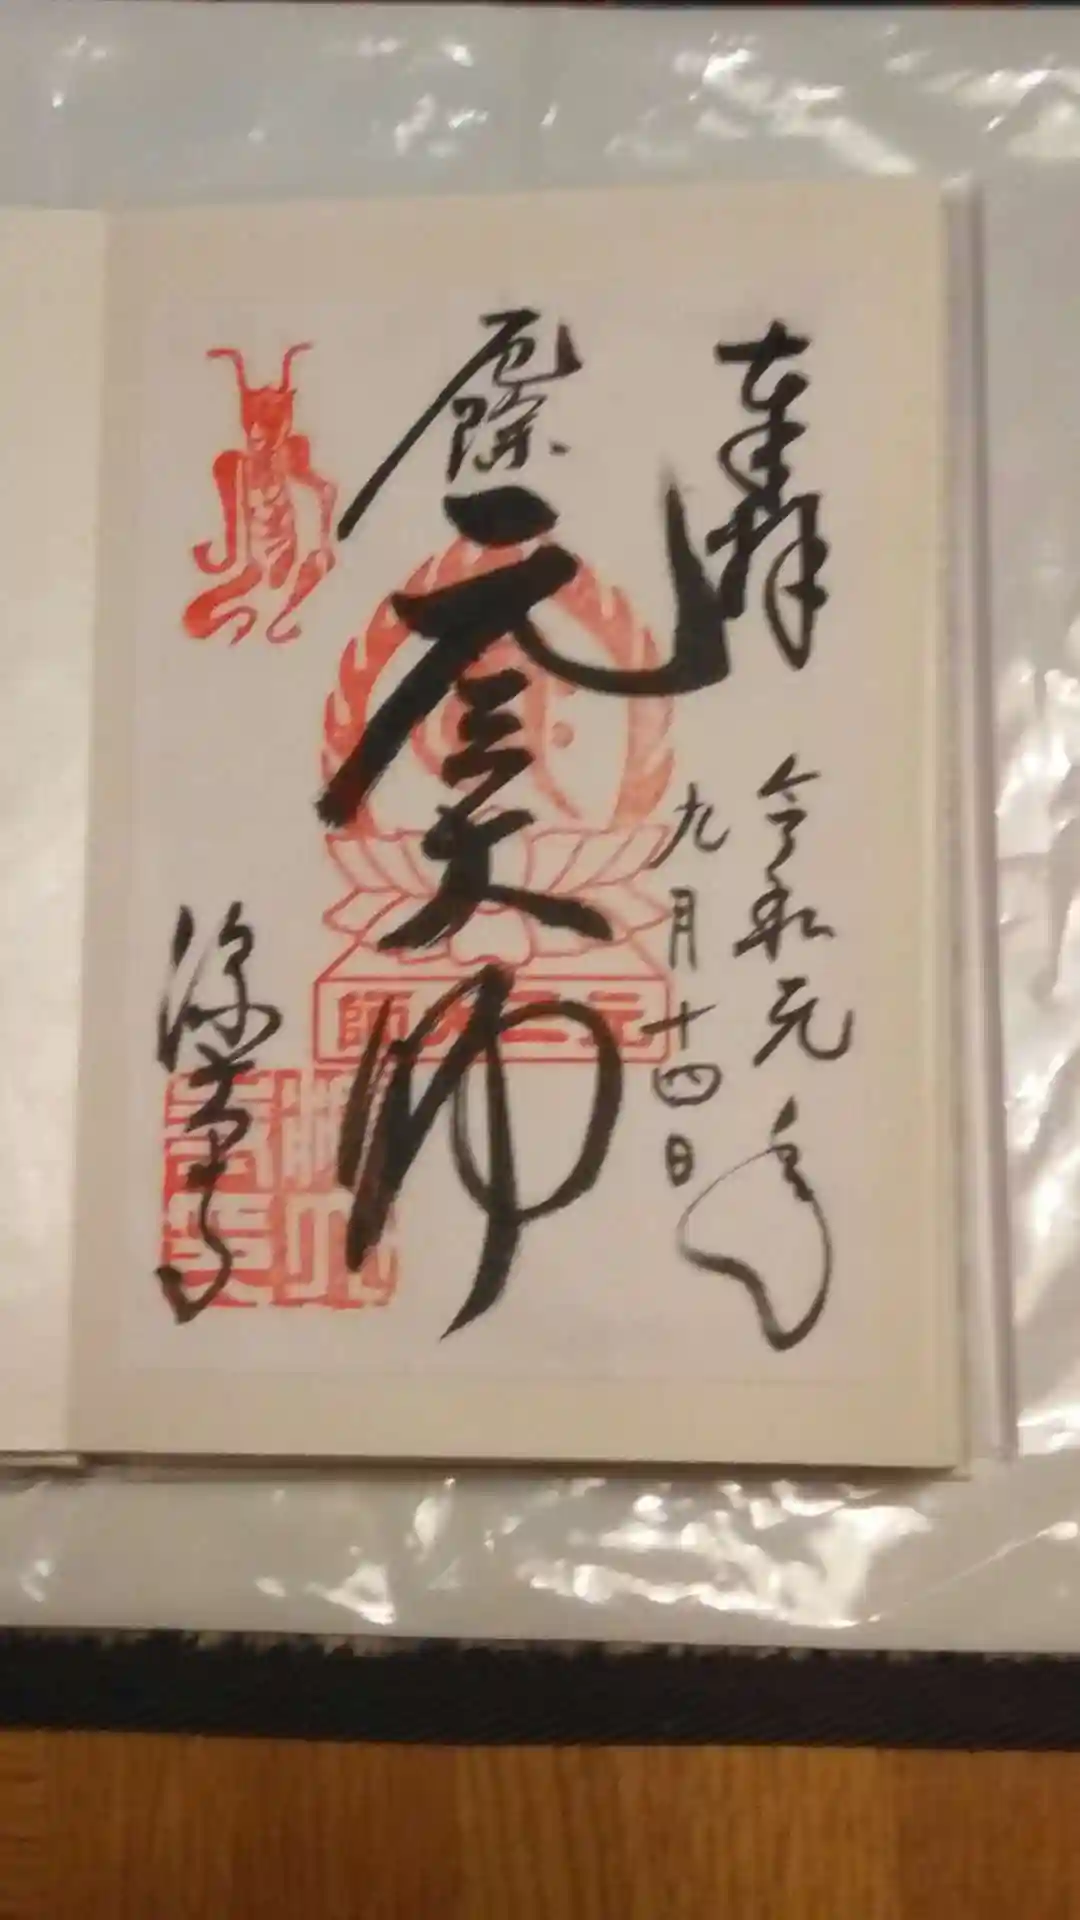 奉拝
令和元年
九月十四日
厄除
元三大師
深大寺
元三大師